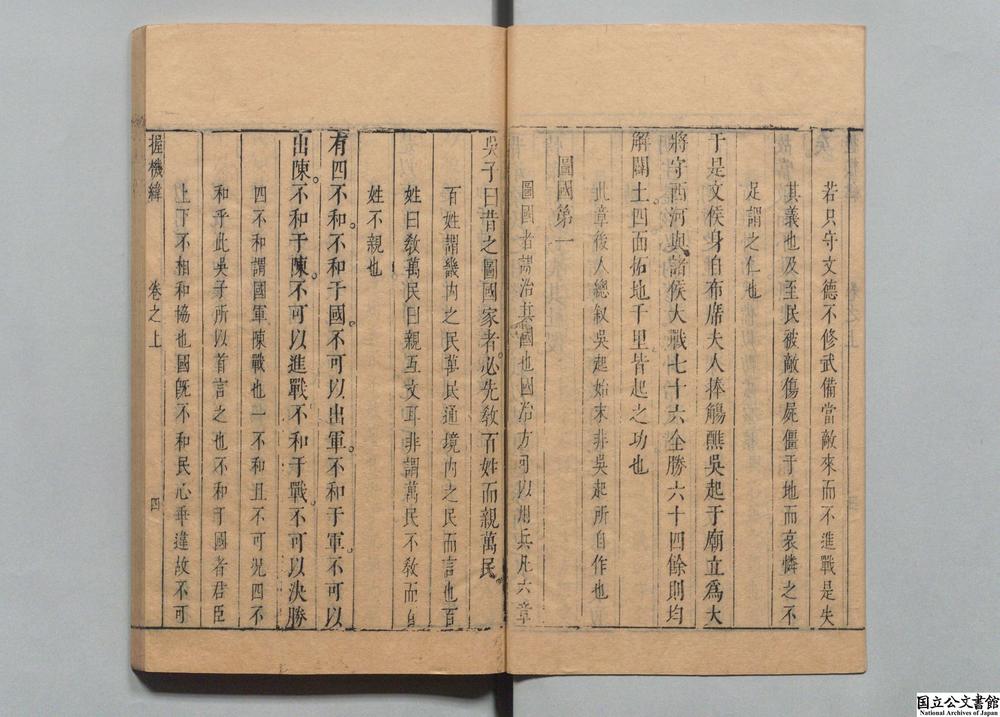 若只守文德不修武備當敵來而不進戰是失
其義也及至民被敵傷屍僵于地而哀憐之不
足謂之仁也
于是文侯身自布席夫人捧觴醮吳起于廟立爲大
將守西河與諸侯大戰七十六全勝六十四餘則均
解闢土四面拓地千里皆起之功也
此章後人總叙吳起始末非吳起所自作也
圖國第一
圖國者謂治其國也國治方可以用兵凡六章
吳子曰昔之圖國家者。必先敎百姓而親萬民。
百姓謂畿內之民萬民通境內之民而言也百
姓曰敎萬民曰親互文耳非謂萬民不敎而百
姓不親也
有四不和。不和于國。不可以出軍。不和于軍。不可以
出陳。不和于陳。不可以進戰。不和于戰。不可以決勝
四不和謂國軍陳戰也一不和且不可況四不
和乎此吳子所以首言之也不和于國者君臣
上下不相和協也國旣不和民心乖違故不可
握機緯 卷之上 四
国立公文書館
National Archives of Japan